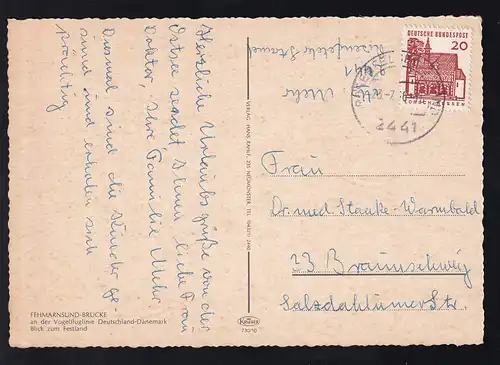 Herzliche Urlaubsgrüße von der
Ostsee sendet Ihnen, liebe Frau
Doktor, Ihre Familie Mehr.
Diesmal sind die Kinder ge-
sund und erholen sich
prächtig.
FEHMARNSUND-BRÜCKE
an der Vogelfluglinie Deutschland-Dänemark
Blick zum Festland
VERLAG HANS KAHL, 235 NEUMÜNSTER, TEL.
Krüger
Mehr
2441
DEUTSCHE BUNDESPOST
20
LORSCH/HESSEN
2441
Frau
Dr. med. Staake-Warmbold
33 Braunschweig
Salzdahlumer Str.